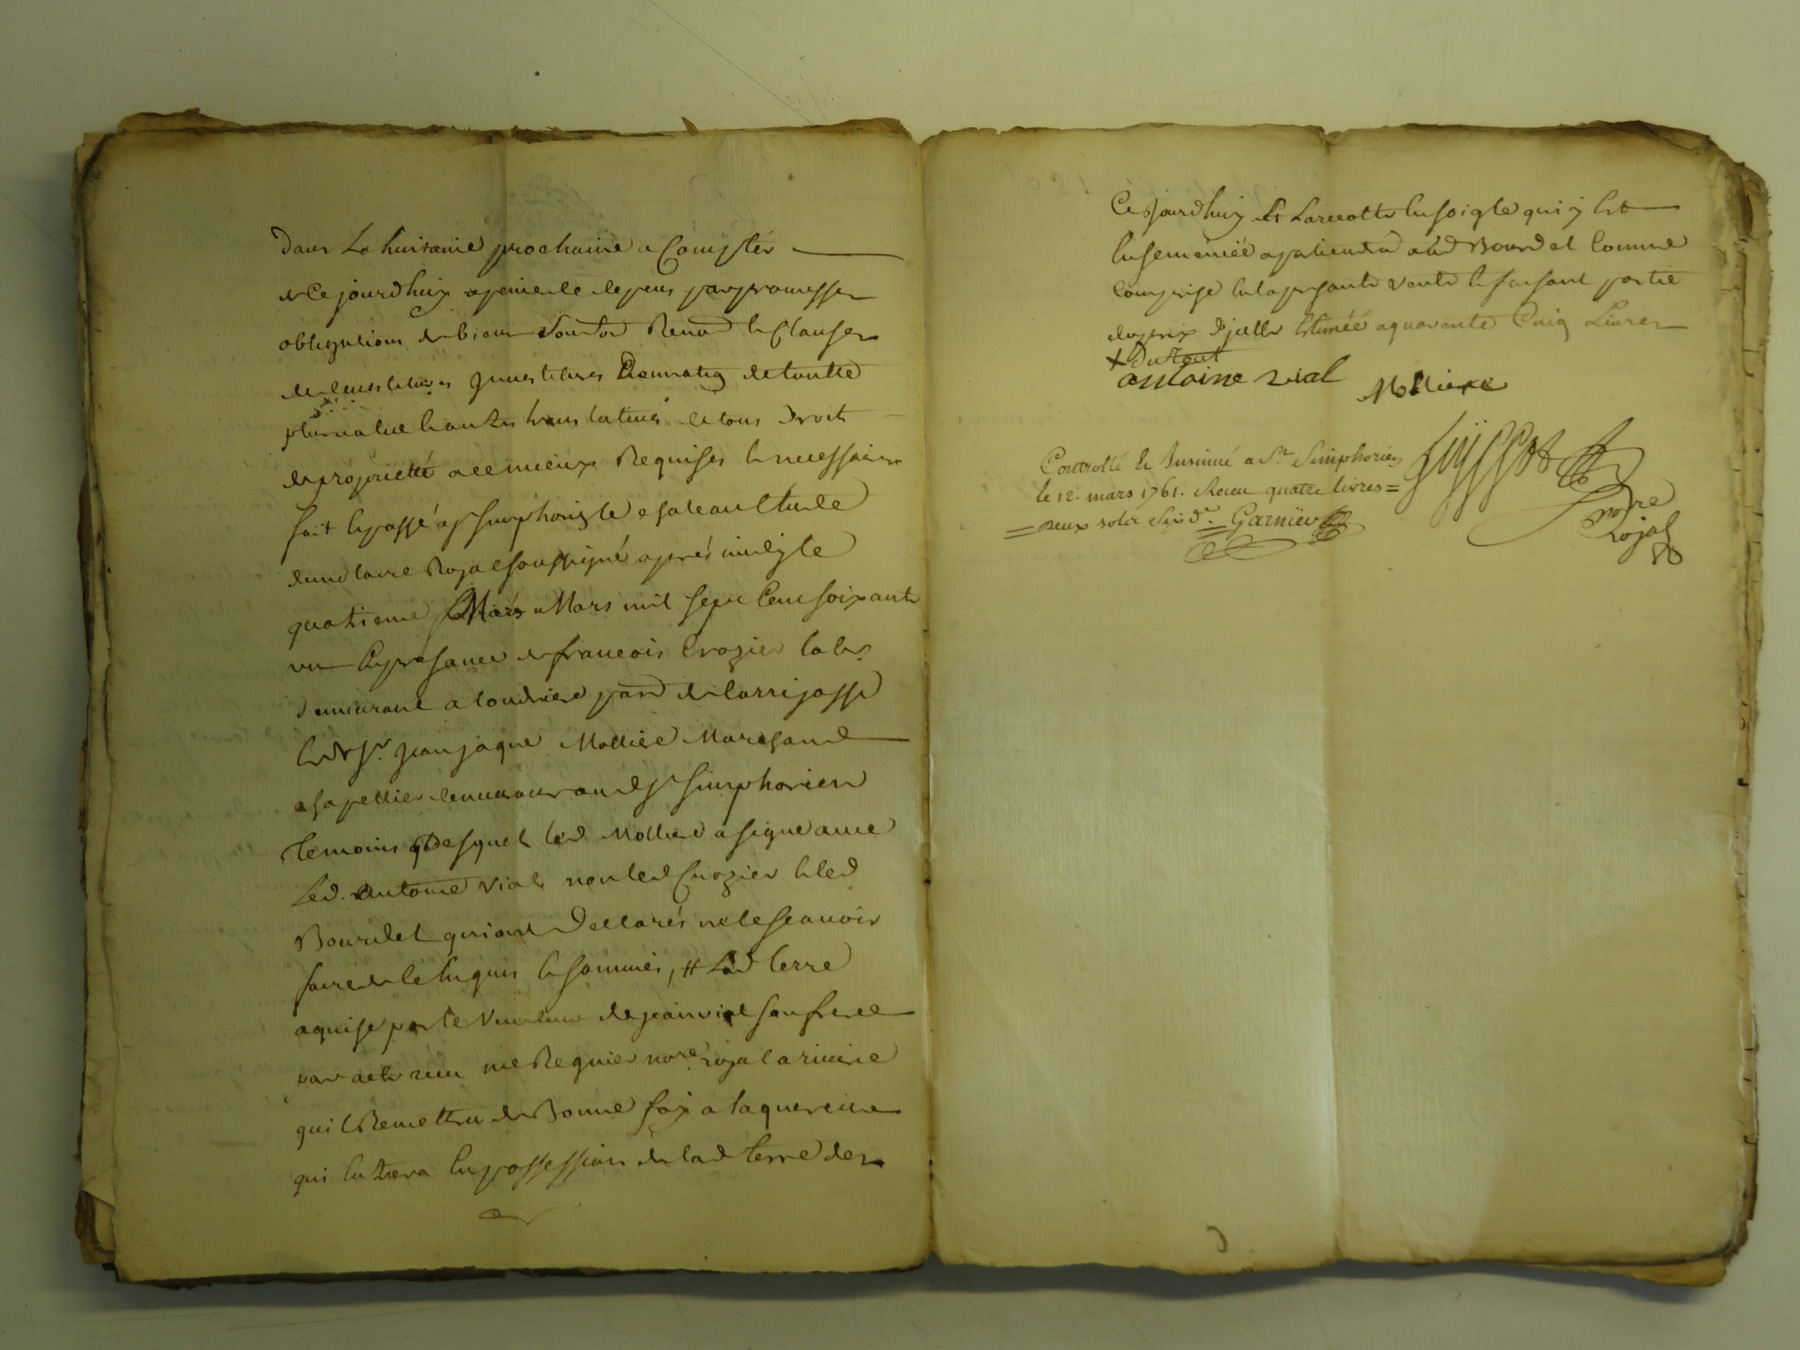 Dans La huitaine prochaine a Compter
de Ce jourdhuy a peine de depens par promesses
obligations de biens Soub[tes] Renon[ons] & Clauses
de demestitures jnvestitures Donnation de toutte
plusvallue & autres translatives de tous Droit
de propriette a ce mieux Requises & necessaires
fait & passé a st Simphorien le chateau Etude
du notaire Royal soussigné aprés midy le
quatrieme Mars mil sept Cent soixante
un En presance de francois Crozier labr
demeurant a Coudriere parr de larrejasse
& de Sr. jean jaque Molliere Marchand
chapellier demeurant aud st Simphorien
temoins Desquels led Molliere a signé avec
Led. antoine vial non led Crozier & led
Bourdel qui ont Declarés ne le scavoir
faire de ce Enquis & sommés, # Lad terre
aquise par le vendeur de jean vial son frere
par acte recu me Requier nore royal a riverie
qu'il Remettra de Bonne foy a laquereur
qui Entrera En possession de lad terre des
Ce jourdhuy Et La recolte En soigle qui y Est
Ensemencée apartiendra aud Bourdel Comme
Comprise En la presante vente & faisant partie
du prix d'jcelle Estimée a quarente Cinq Livres
+ Du tout
antoine vial
Molliere
Controllé & Insinué a St. Simphorien
le 12. mars 1761. Receu quatre livres =
= deux sols six d. = Garnier
Guyssot
nore
Rojal